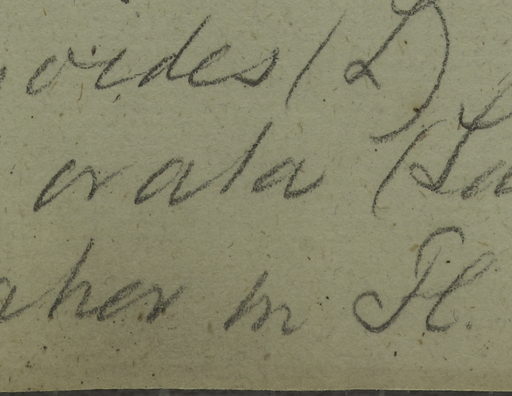 oides (L)
ovata (La
aher in Fl.